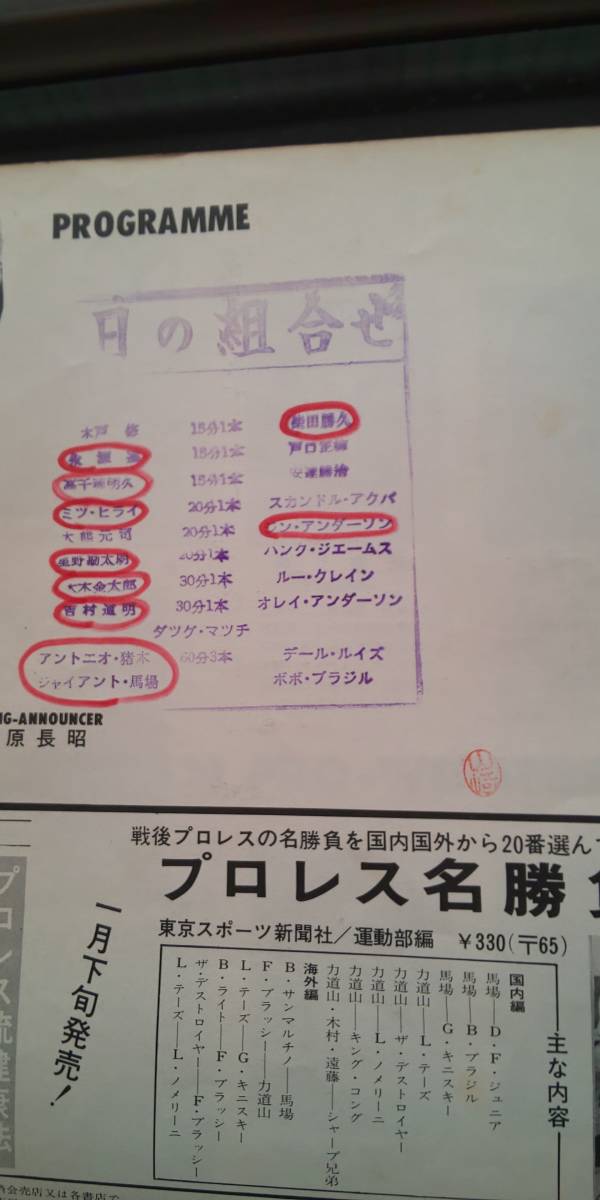 PROGRAMME
日の組合せ
木戸修 15分1本 柴田勝久
永源遙 15分1本 戸口正徳
高千穂明久 15分1本 安達勝治
ミツ・ヒライ 20分1本 スカンドル・アクバ
大熊元司 20分1本 ン・アンダーソン
星野勘太郎 20分1本 ハンク・ジエームス
大木金太郎 30分1本 ルー・クレイン
吉村道明 30分1本 オレイ・アンダーソン
ダツグ・マツチ
アントニオ・猪木 60分3本 デール・ルイズ
ジャイアント・馬場 ボボ・ブラジル
NG-ANNOUNCER
原長昭
戦後プロレスの名勝負を国内国外から20番選んで
プロレス名勝負
東京スポーツ新聞社/運動部編 ¥330(〒65)
主な内容
国内編
馬場――D・F・ジュニア
馬場――B・ブラジル
馬場――G・キニスキー
力道山――L・テーズ
力道山――ザ・デストロイヤー
力道山――L・ノメリーニ
力道山――キング・コング
力道山・木村・遠藤――シャープ兄弟
海外編
B・サンマルチノ――馬場
F・ブラッシー――力道山
L・テーズ――G・キニスキー
B・ライト――F・ブラッシー
ザ・デストロイヤー――F・ブラッシー
L・テーズ――L・ノメリーニ
一月下旬発売!
プロレス流健康法